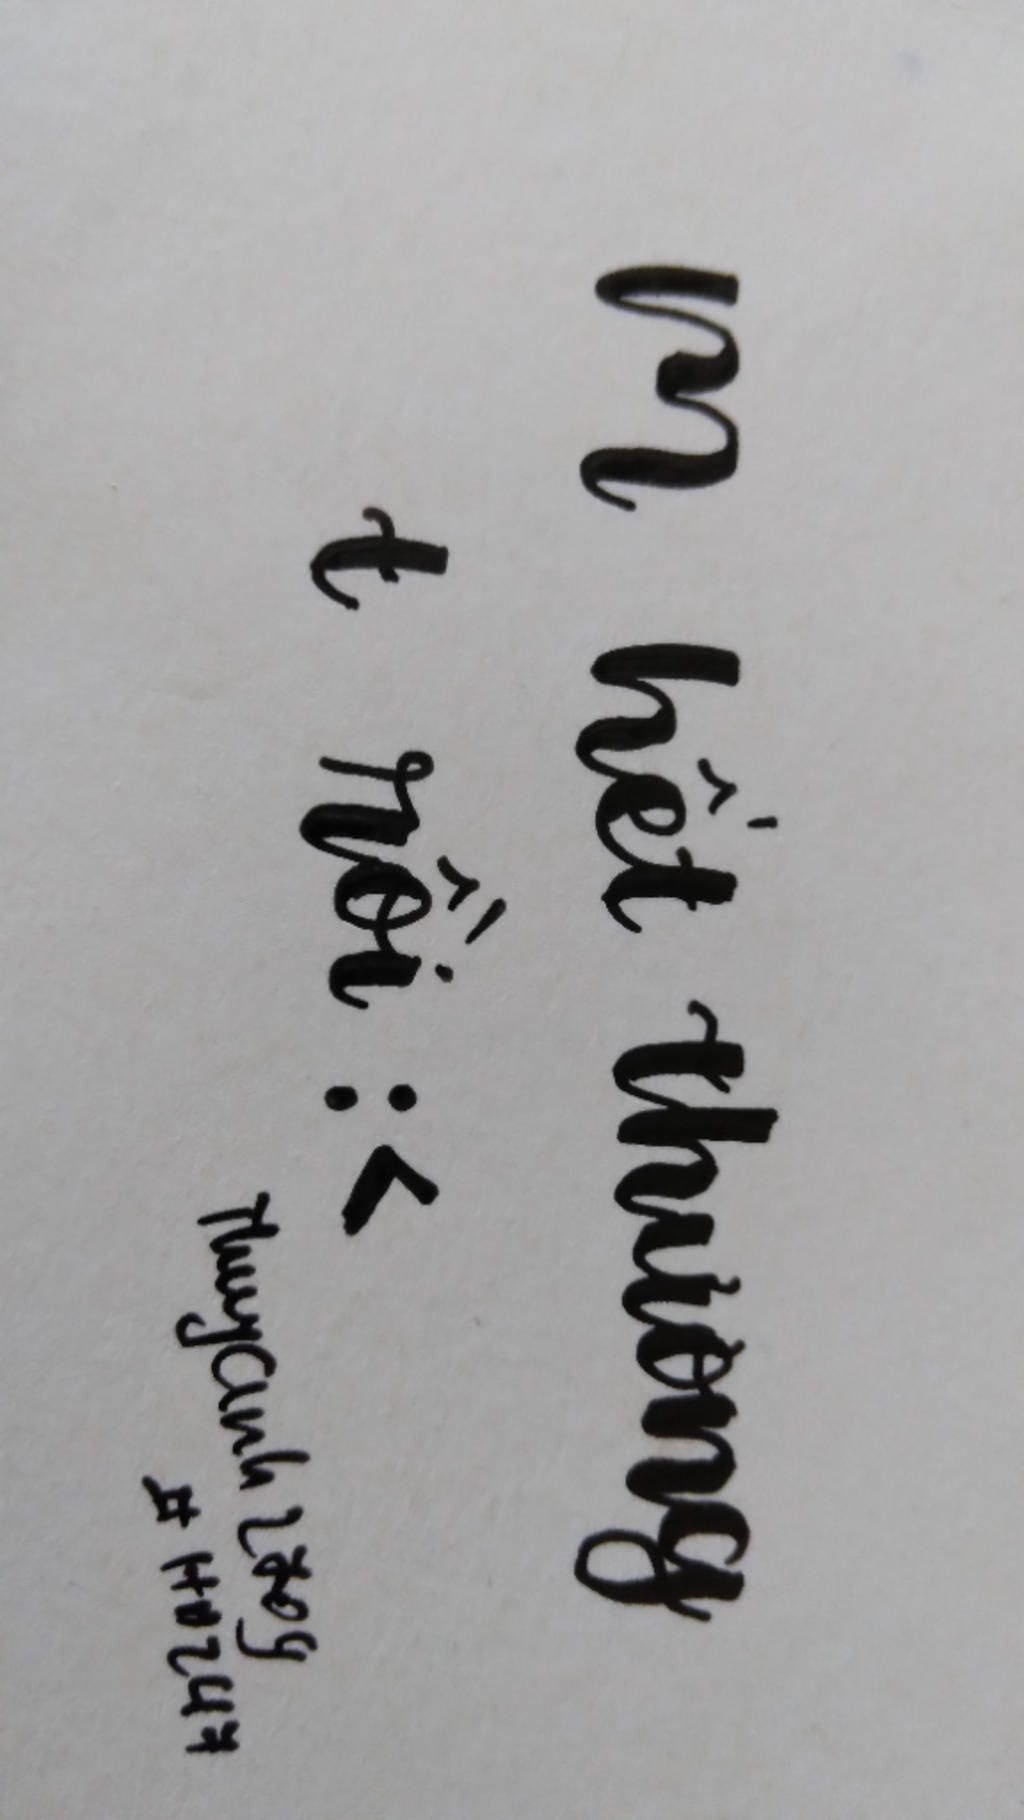 m hết thương
t rồi :<
Thuycanh2809
#HD247